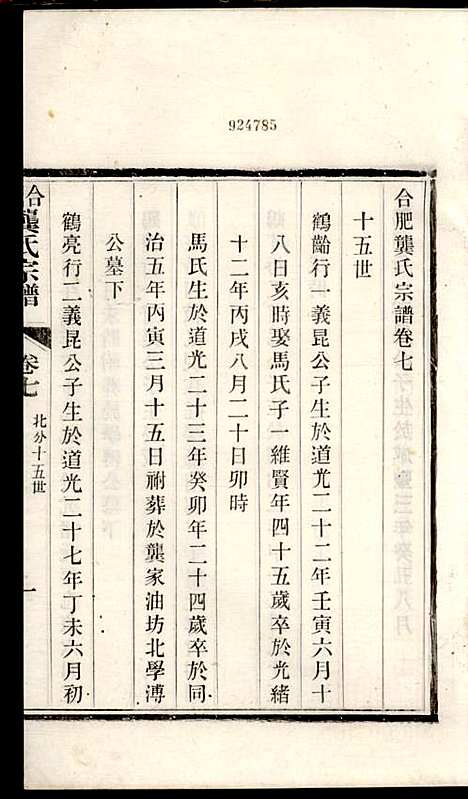 924785
合肥龔氏宗譜卷七
十五世
鶴齡行一義昆公子生於道光二十二年壬寅六月十
八日亥時娶馬氏子一維賢年四十五歲卒於光緒
十二年丙戌八月二十日卯時
馬氏生於道光二十三年癸卯年二十四歲卒於同
治五年丙寅三月十五日祔葬於龔家油坊北學溥
公墓下
鶴亮行二義昆公子生於道光二十七年丁未六月初
合肥龔氏宗譜
卷七
北分十五世
一